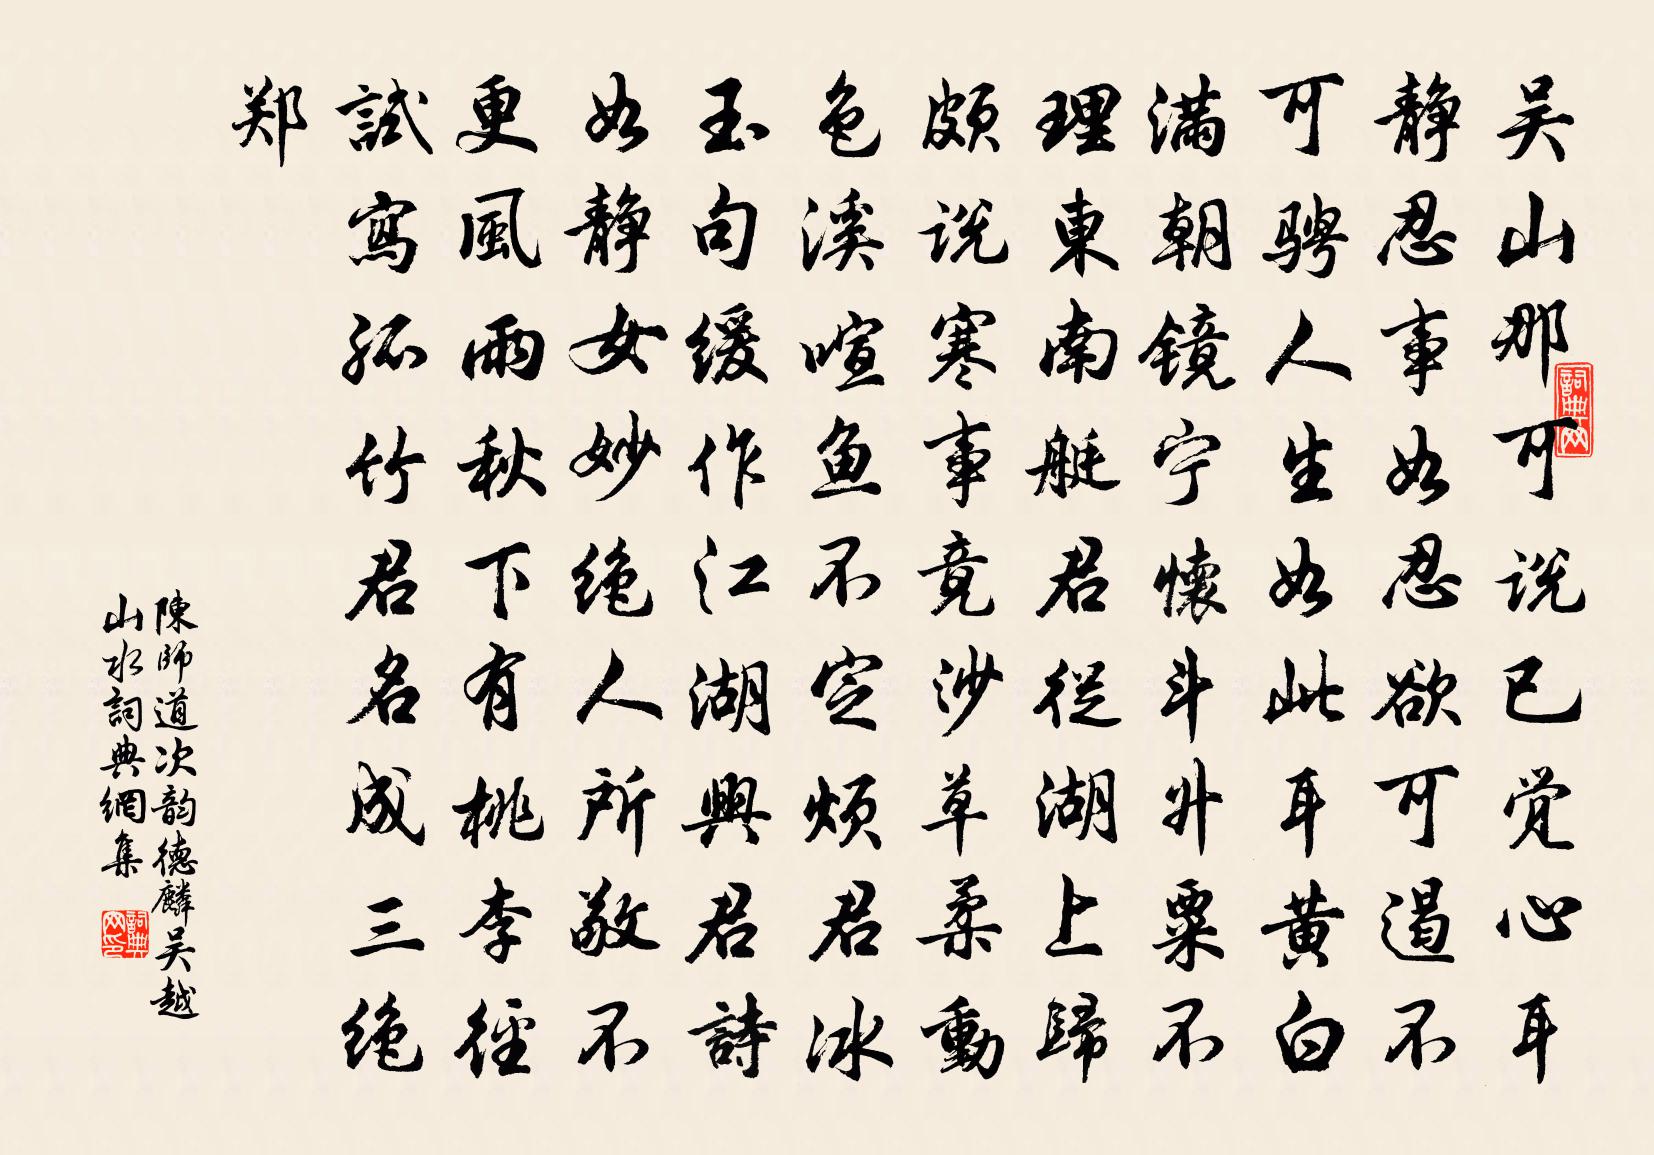 吴山那可说已觉心耳
静忍事如忍欲可遏不
可骋人生如此耳黄白
满朝镜宁懷斗升粟不
理東南艇君従湖上歸
頗说寒事竟沙草柔動
色溪喧魚不定煩君冰
玉句缓作江湖興君詩
如静女妙绝人所敬不
更風雨秋下有桃李徑
試寫孤竹君名成三绝
郑
陳師道次韵德麟吴越
山水詞典網集
詞典网
詞典网印